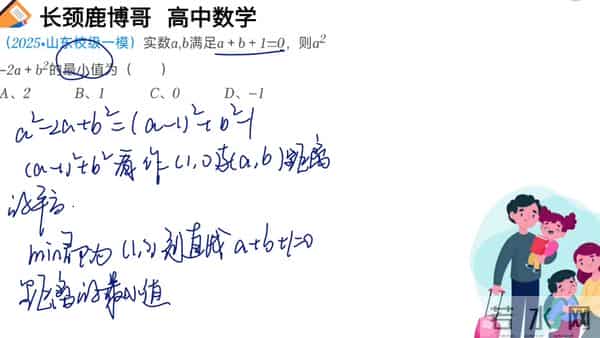 长颈鹿博哥 高中数学
（2025•山东校级一模）实数a,b满足a+b+1=0，则a²
-2a+b²的最小值为（ ）
A、2 B、1 C、0 D、-1
a²-2a+b²=(a-1)²+b²-1
(a-1)²+b²看作(1,0)与(a,b)距离
的平方.
min即为(1,0)到直线a+b+1=0
距离的最小值
若水网